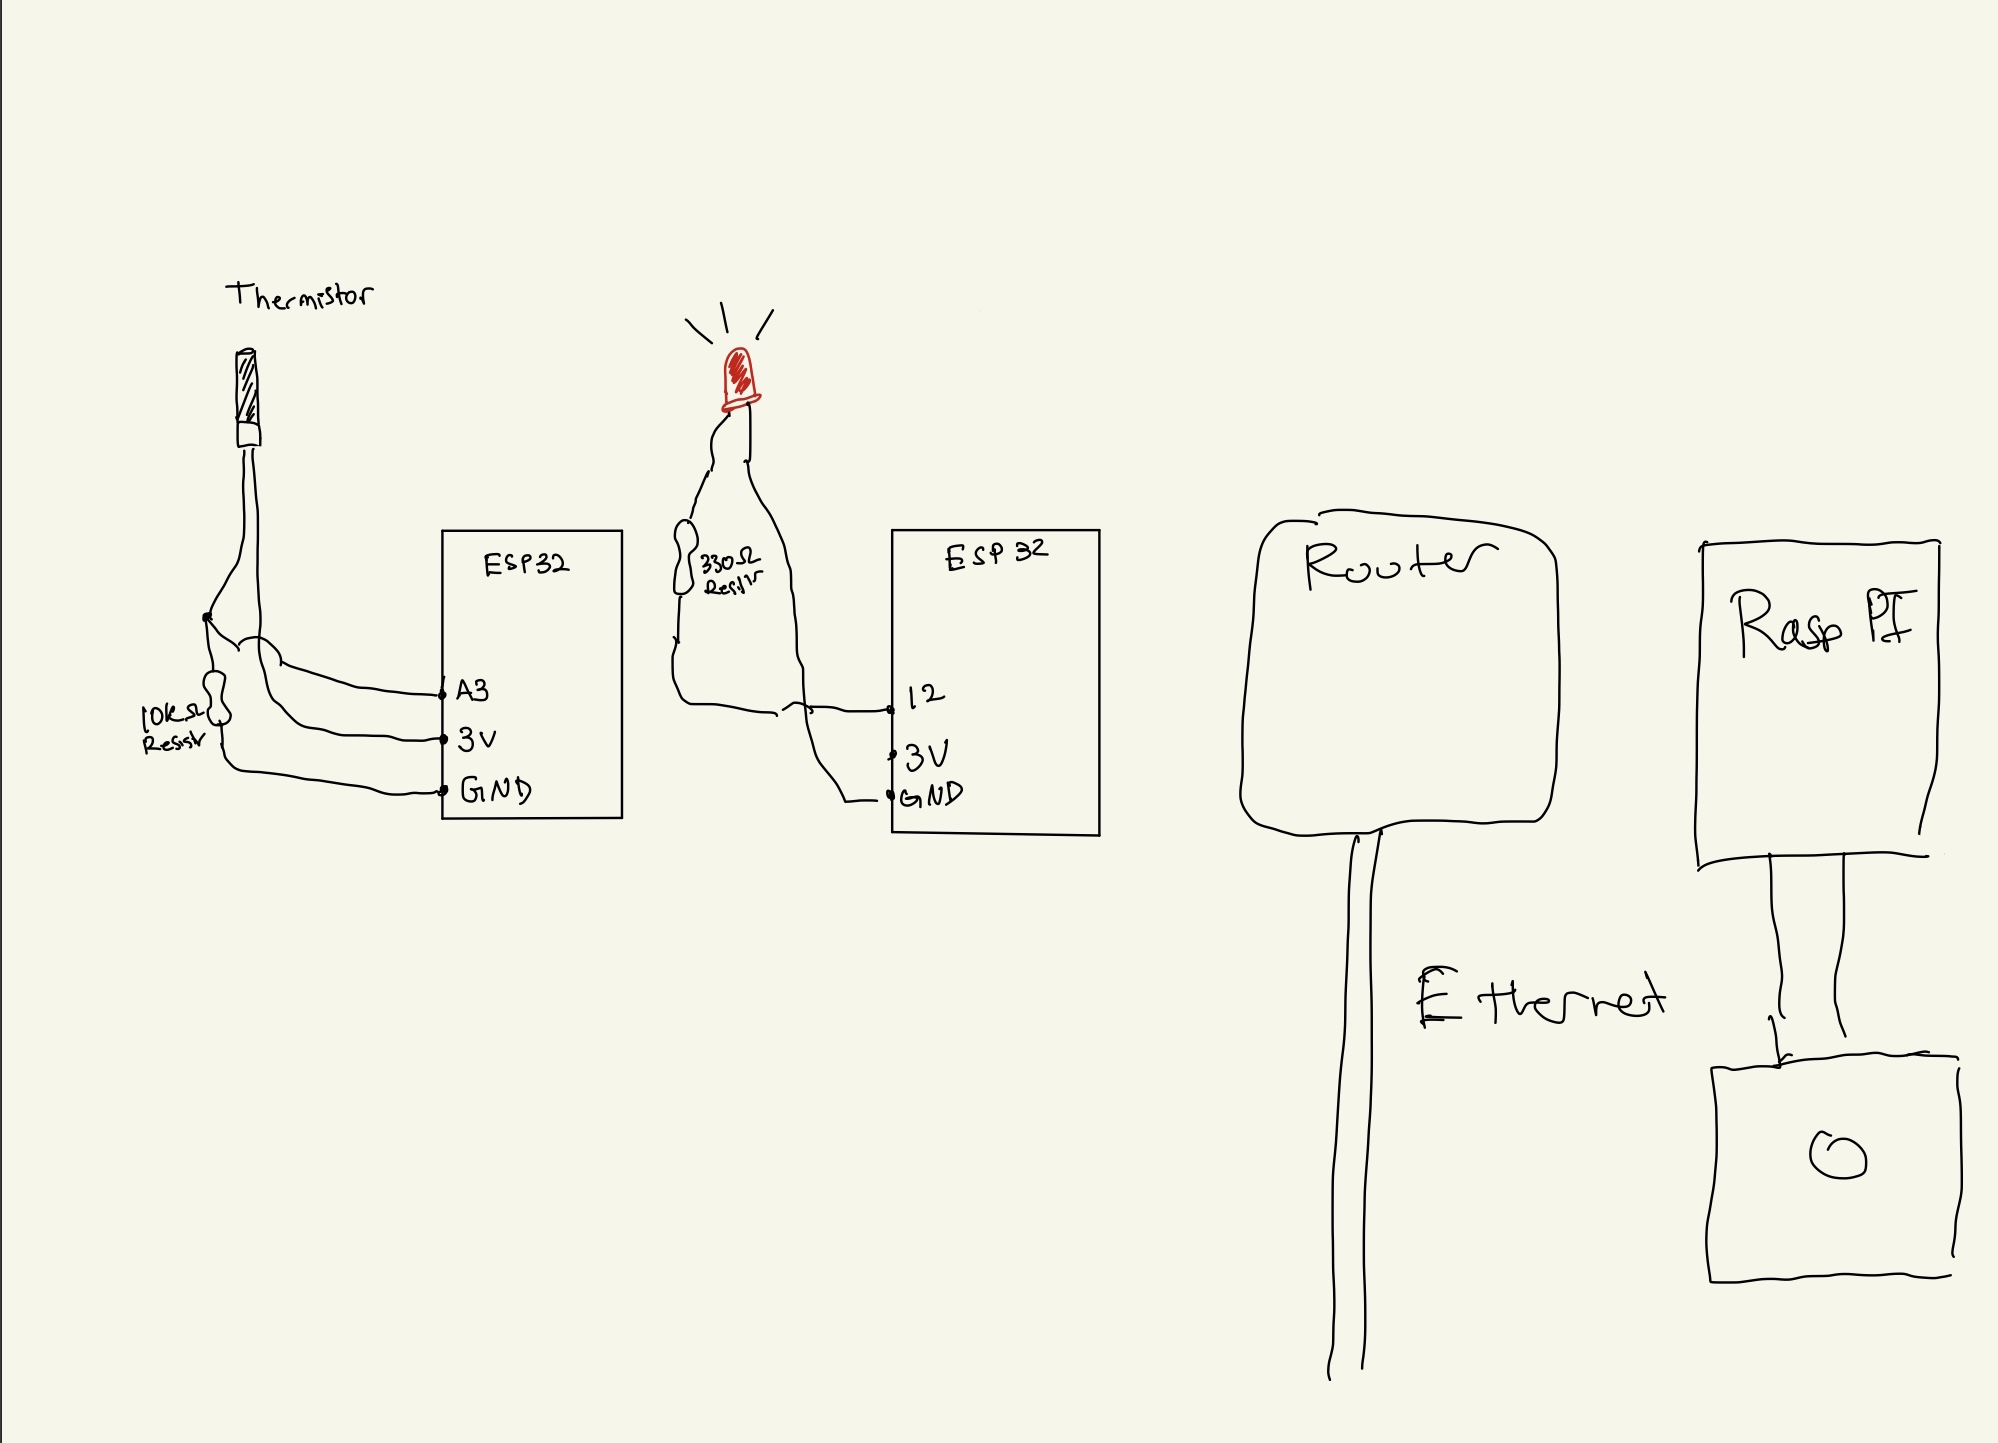 Thermistor
10kΩ
Resistr
ESP32
A3
3V
GND
330Ω
Resistr
ESP32
12
3V
GND
Router
Ethernet
Rasp PI